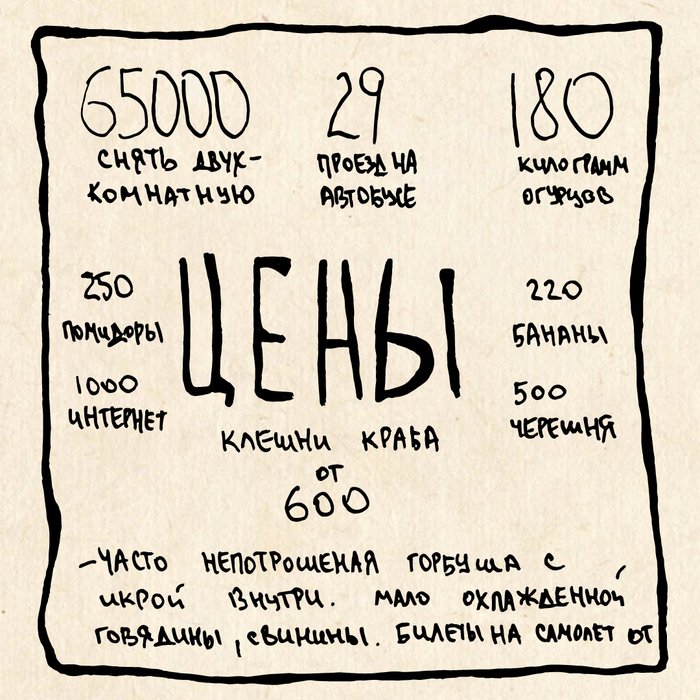 65000
СНЯТЬ ДВУХ-
КОМНАТНУЮ
29
ПРОЕЗД НА
АВТОБУСЕ
180
КИЛОГРАММ
ОГУРЦОВ
ЦЕНЫ
250
ПОМИДОРЫ
1000
ИНТЕРНЕТ
220
БАНАНЫ
500
ЧЕРЕШНЯ
КЛЕШНИ КРАБА
ОТ
600
–ЧАСТО НЕПОТРОШЕНАЯ ГОРБУША С
ИКРОЙ ВНУТРИ. МАЛО ОХЛАЖДЕННОЙ
ГОВЯДИНЫ, СВИНИНЫ. БИЛЕТЫ НА САМОЛЕТ ОТ